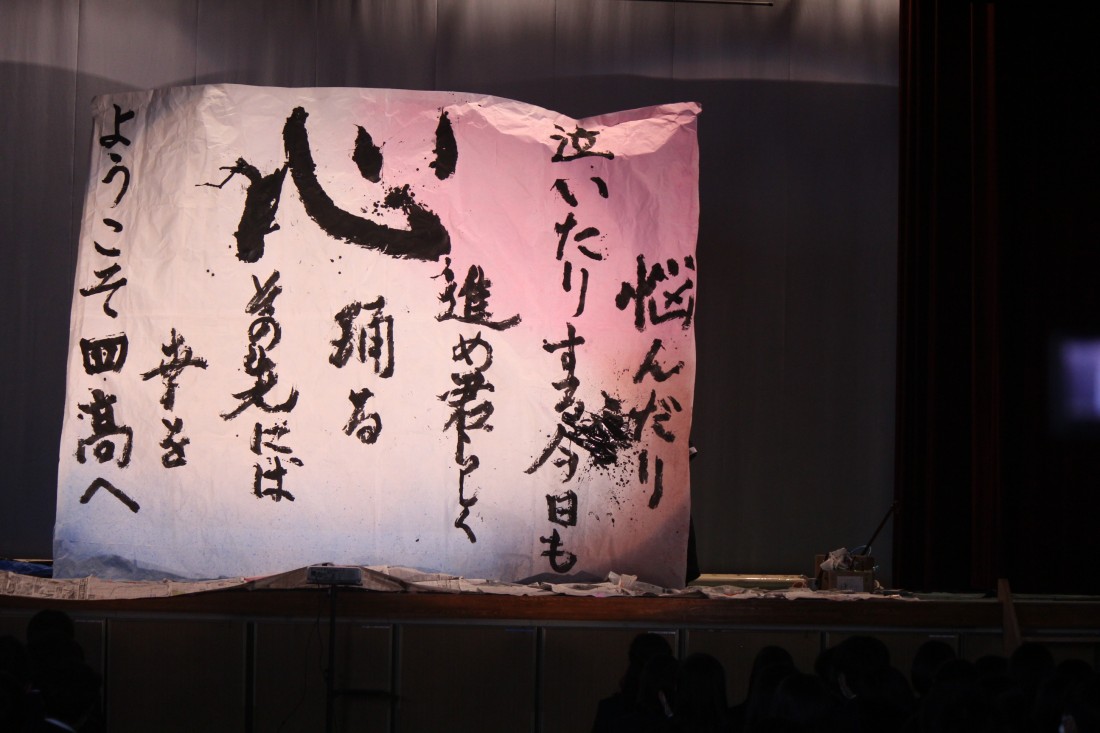 悩んだり
泣いたりする今日も
進め君らしく
心踊る
その先には
幸を
ようこそ四高へ